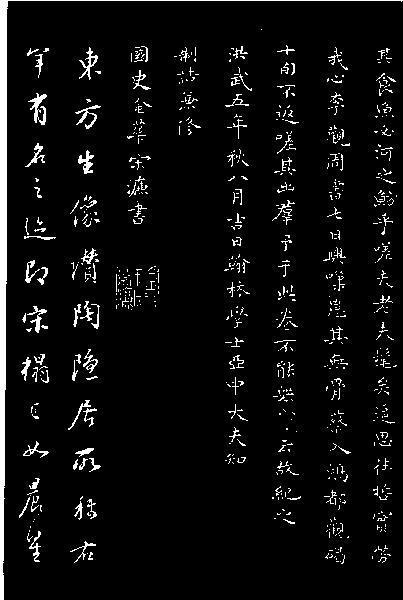 其食魚必河之魴乎嗟夫老夫髦矣追思往哲實勞
我心李觀周書七日興嘆其無骨蔡入鴻都觀碣
十旬不返嗟其出羣予于此卷不能無云故紀之
洪武五年秋八月吉日翰林學士亞中大夫知
制誥兼修
國史金華宋濂書
東方生像讚陶隱居所稱右
軍有名之迹即宋搨已如晨星